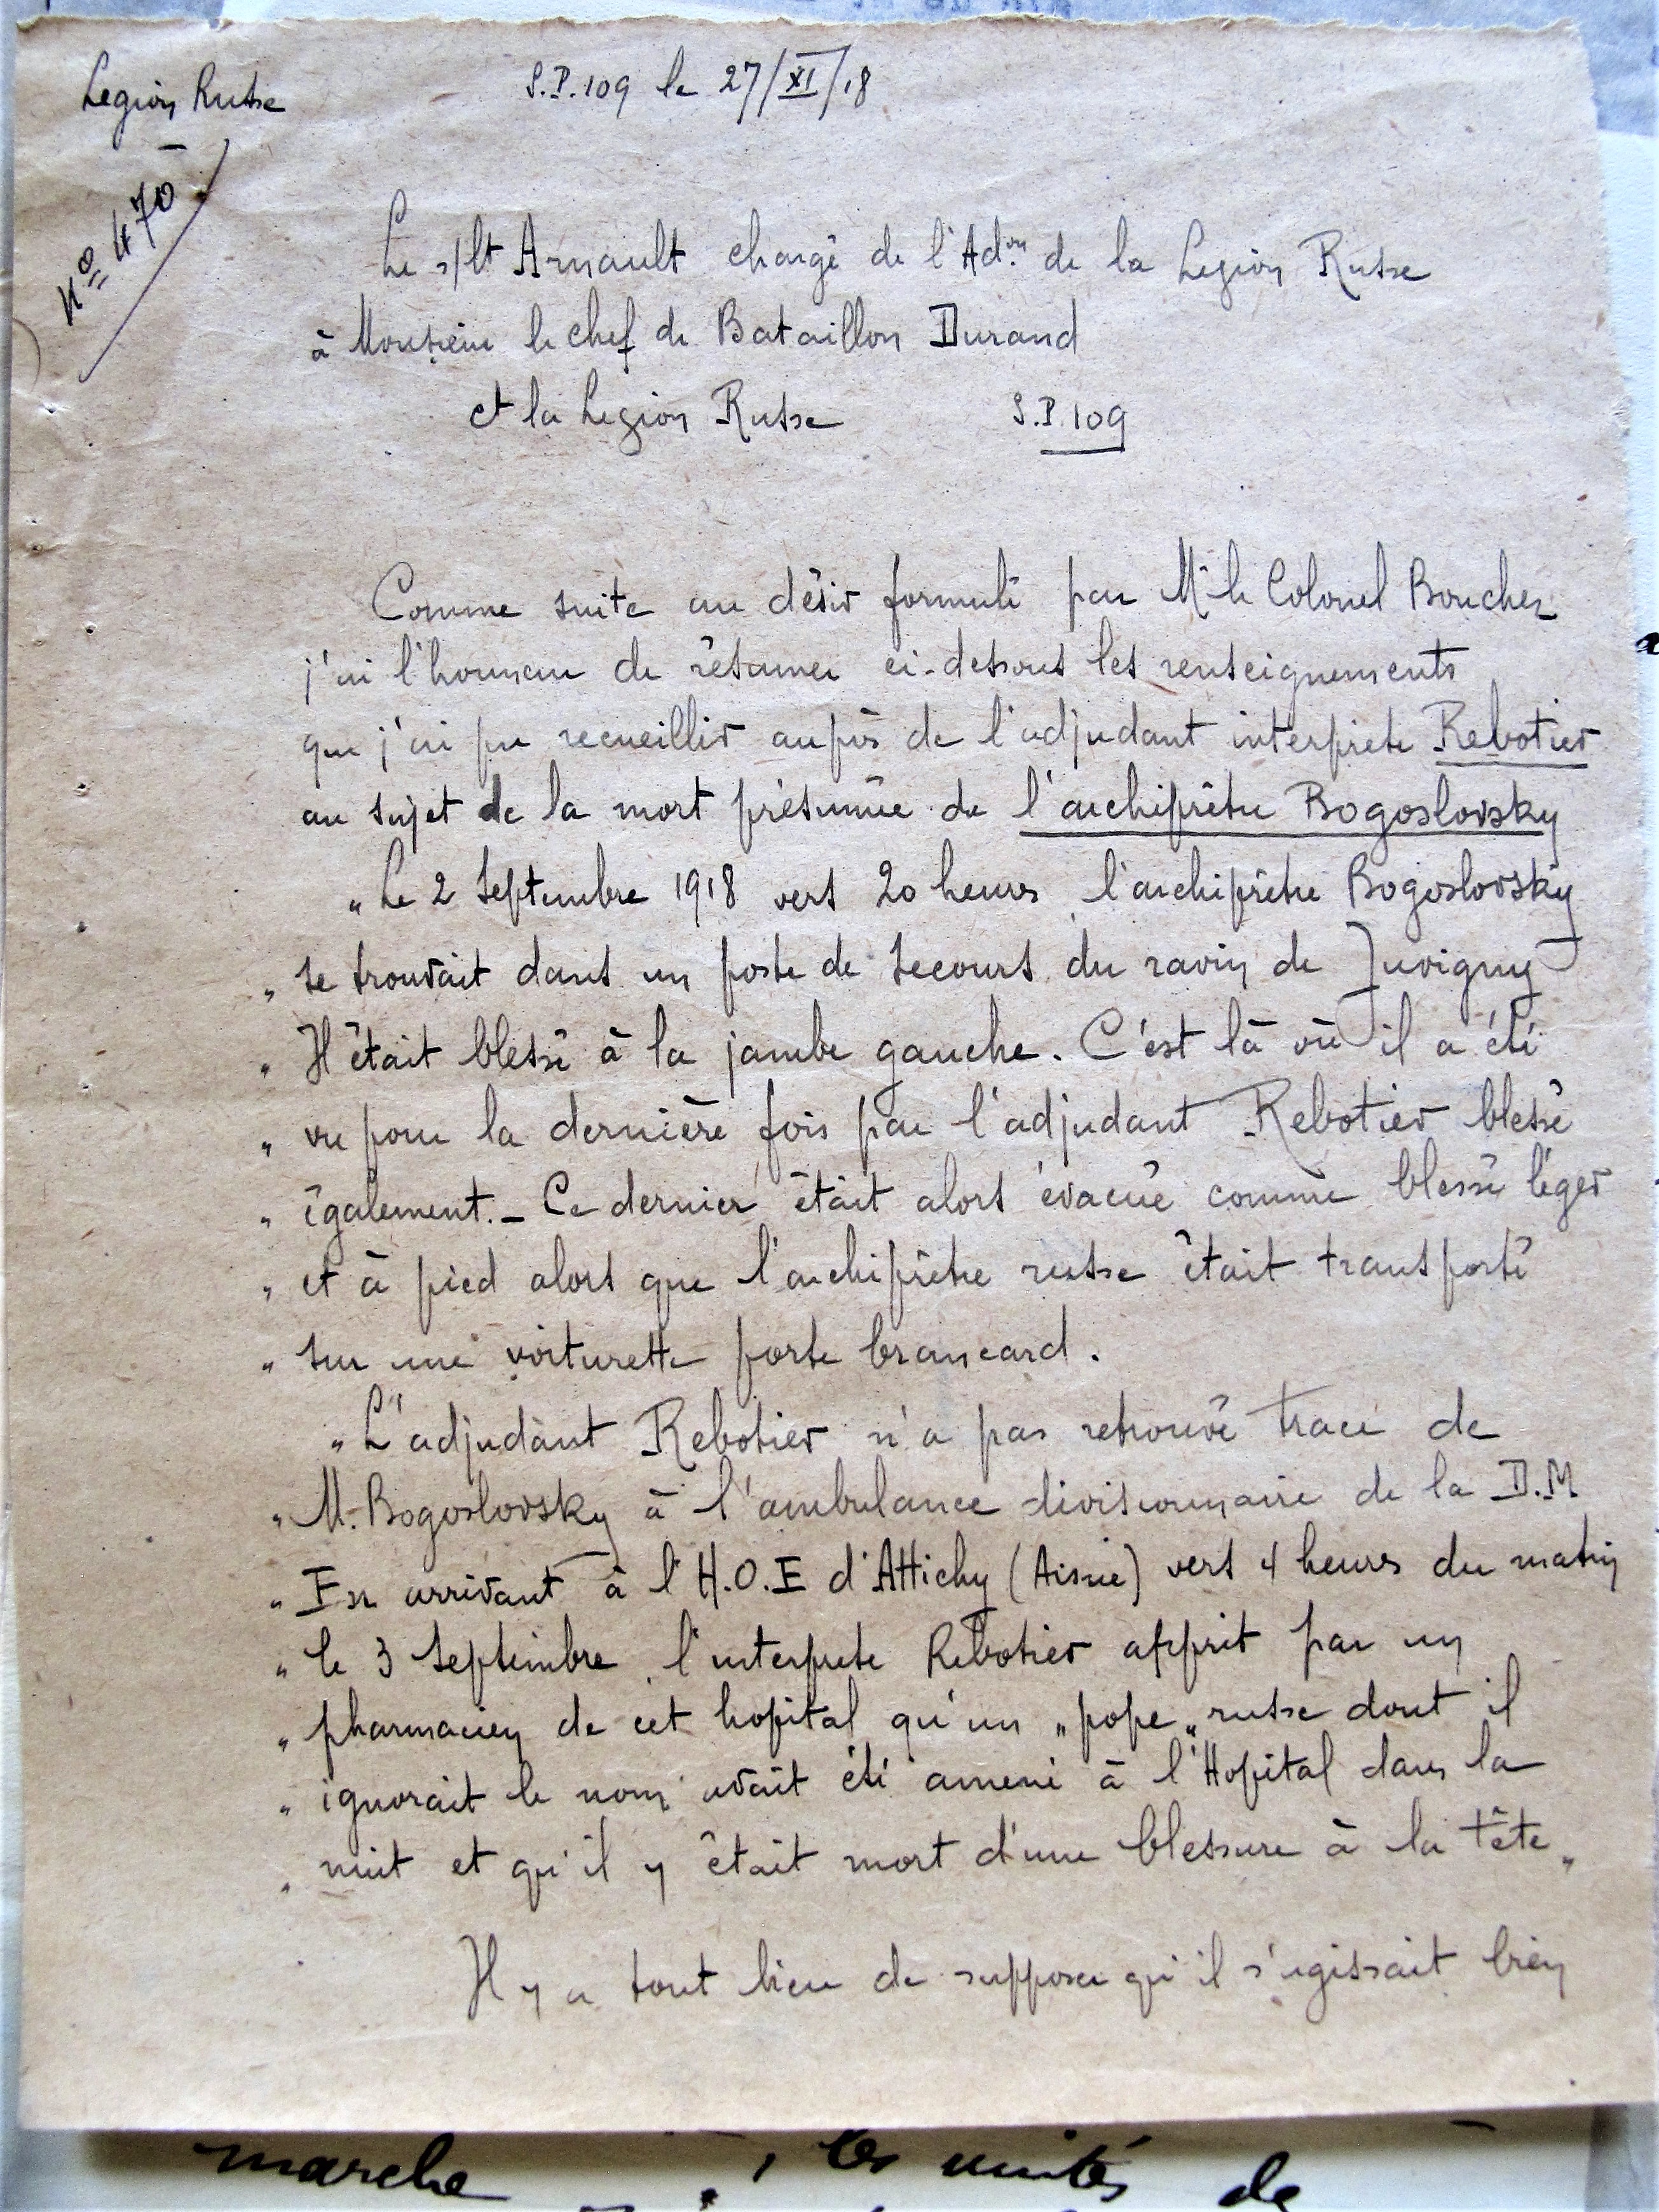 Legion Russe
S.P. 109 le 27/XI/18
N° 470
Le s/lt Arnault chargé de l'Adon de la Legion Russe
à Monsieur le chef de Bataillon Durand
et la Legion Russe S.P. 109
Comme suite au désir formulé par Mr le Colonel Boucher
j'ai l'honneur de résumer ci-dessous les renseignements
que j'ai pu recueillir auprès de l'adjudant interprete Rebotier
au sujet de la mort présumée de l'archiprêtre Bogoslovsky
"Le 2 Septembre 1918 vers 20 heures, l'archiprêtre Bogoslovsky
" se trouvait dans un poste de secours du ravin de Juvigny
" Il était blessé à la jambe gauche. C'est là où il a été
" vu pour la dernière fois par l'adjudant Rebotier blessé
" également. _ Ce dernier était alors évacué comme blessé léger
" et à pied alors que l'archiprêtre russe était transporté
" sur une voiturette porte brancard.
" L'adjudant Rebotier n'a pas retrouvé trace de
" M. Bogoslovsky à l'ambulance divisionnaire de la D.M
" En arrivant à l'H.O.E d'Attichy (Aisne) vers 4 heures du matin
" le 3 Septembre, l'interprete Rebotier apprit par un
" pharmacien de cet hopital qu'un "pope" russe dont il
" ignorait le nom avait été amené à l'Hopital dans la
" nuit et qu'il y était mort d'une blessure à la tête"
Il y a tout lieu de supposer qu'il s'agissait bien
marche les unités de